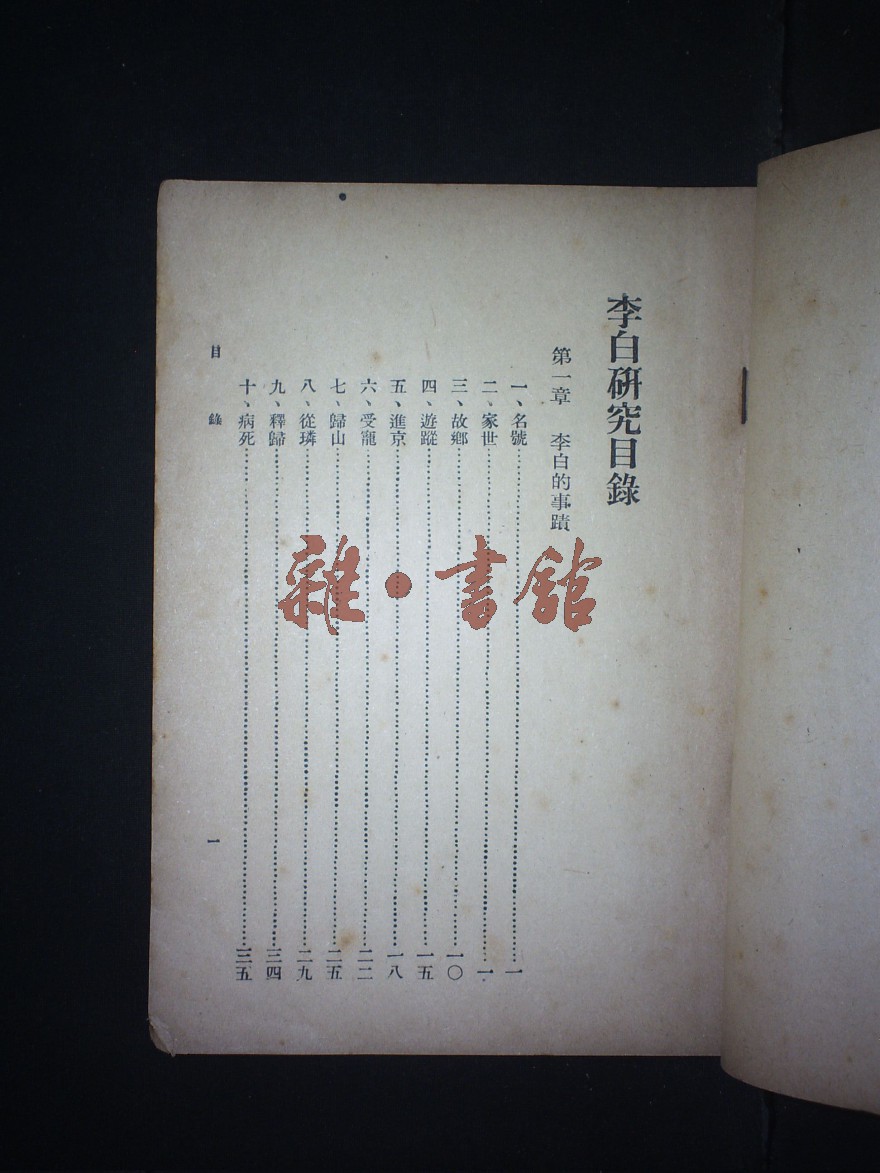 李白研究目錄
第一章　李白的事蹟
一、名號……一
二、家世……一
三、故鄉……一〇
四、遊蹤……一五
五、進京……一八
六、受寵……二二
七、歸山……二五
八、從璘……二九
九、釋歸……三四
十、病死……三五
目錄　一
雜·書館